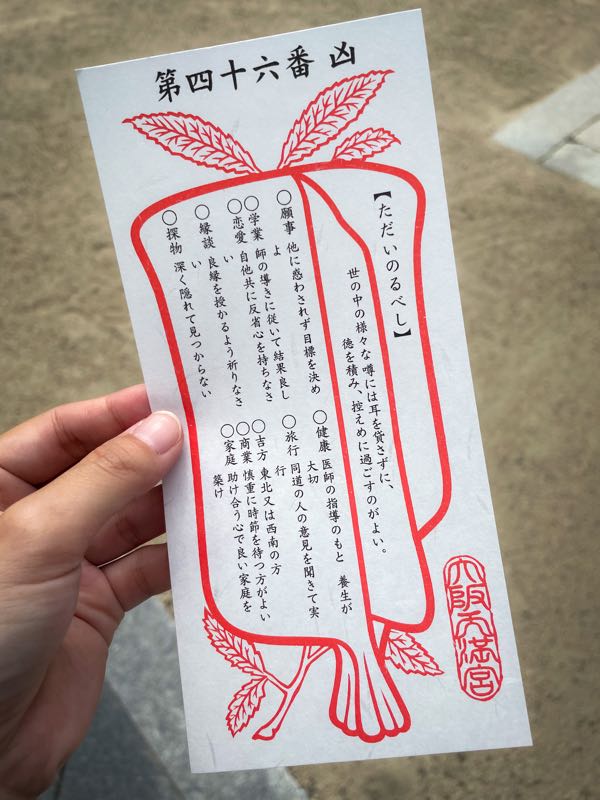 第四十六番 凶
【ただいのるべし】
世の中の様々な噂には耳を貸さずに、
徳を積み、控えめに過ごすのがよい。
○願事 他に惑わされず目標を決め
よ
○学業 師の導きに従いて結果良し
○恋愛 自他共に反省心を持ちなさ
い
○縁談 良縁を授かるよう祈りなさ
い
○探物 深く隠れて見つからない
○健康 医師の指導のもと 養生が
大切
○旅行 同道の人の意見を聞きて実
行
○吉方 東北又は西南の方
○商業 慎重に時節を待つ方がよい
○家庭 助け合う心で良い家庭を
築け
大阪天満宮